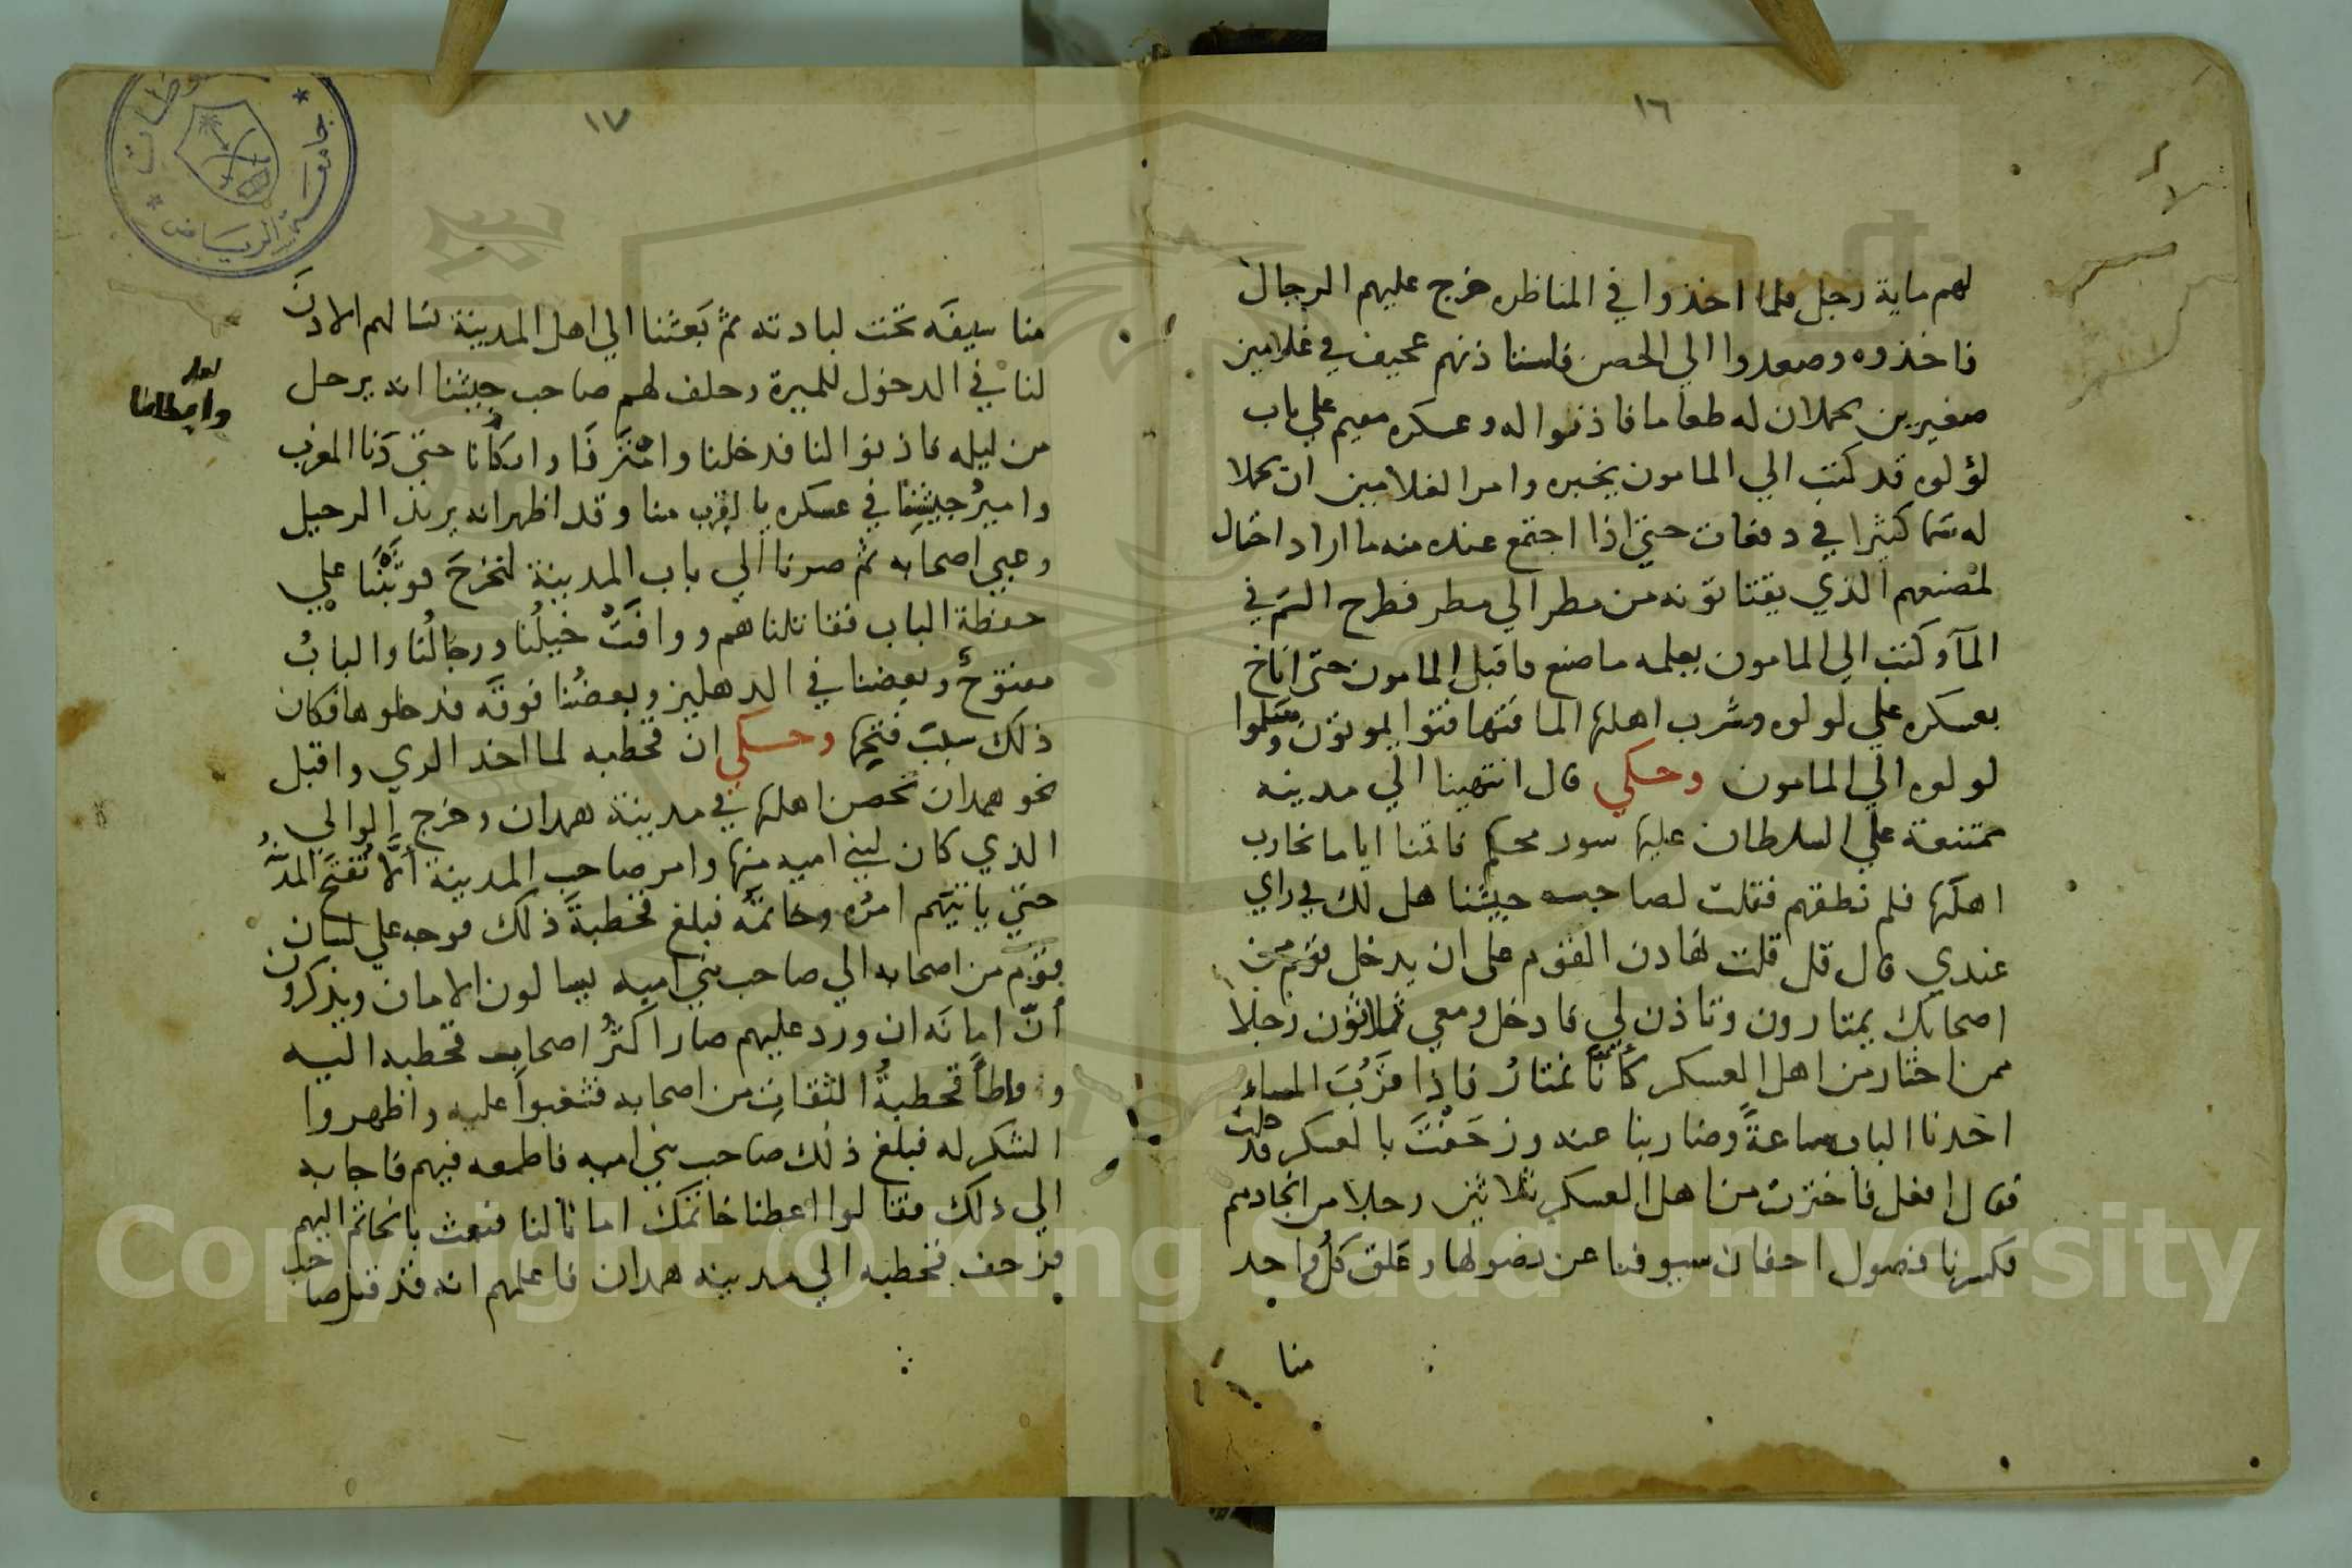 ١٦
لهم ماية رجل فلما اخذوا في المناظره خرج عليهم الرجال
فاخذوه وصعدوا الي الحصن فاستاذنهم عجيف في غلامين
صغيرين يحملان له طعاما فاذنوا له وعسكره مقيم علي باب
لؤلوه قد كتب الي المامون يخبره وامر الغلامين ان يحملا
له سما كثيرا في دفعات حتي اذا اجتمع عنده منه ما اراد احتال
لمصنعهم الذي يقتاتونه من مطر الي مطر فطرح السم في
المآ وكتب الي المامون يعلمه ما صنع فاقبل المامون حتى اناخ
بعسكره علي لولوه وشرب اهلها الما فتهافتوا يموتون وسلموا
لولوه الي المامون وحكي قال انتهينا الي مدينه
ممتنعة علي السلطان عليها سور محكم فاقمنا اياما نحارب
اهلها فلم نطقهم فقلت لصاحب جيشنا هل لك في راي
عندي قال قل قلت تهادن القوم على ان يدخل قوم من
اصحابك يمتارون وتاذن لي فادخل ومعي ثلاثون رجلا
ممن اختار من اهل العسكر كأننا نمتار فاذا قرب المساء
اخذنا الباب ساعة وضاربنا عنه وزحفت بالعسكر فدخلت
فقال افعل فاخترت من اهل العسكر ثلاثين رجلا من انجادهم
فكسرنا فضول اجفان سيوفنا عن نصولها وعلق كل واحد
منا
١٧
منا سيفه تحت لبادته ثم بعثنا الي اهل المدينة نسالهم الاذن
لنا في الدخول للميرة وحلف لهم صاحب جيشنا انه يرحل
من ليله فاذنوا لنا فدخلنا وامترنا حتي دنا المغرب
وامير جيشنا في عسكره بالقرب منا وقد اظهر انه يريد الرحيل
وعبي اصحابه ثم صرنا الي باب المدينة لنخرج فوثبنا علي
حفظة الباب فقاتلناهم ووافت خيلنا ورجالنا والباب
مفتوح وبعضنا في الدهليز وبعضنا فوقه فدخلوها فكان
ذلك سبب فتحها وحكي ان قحطبه لما اخذ الري واقبل
نحو همدان تحصن اهلها في مدينة همدان وخرج الوالي
الذي كان لبني اميه منها وامر صاحب المدينة ألا تفتح المدينة
حتي ياتيهم امره وخاتمه فبلغ قحطبة ذلك فوجه علي لسان
قوم من اصحابه الي صاحب بني اميه يسالون الامان ويذكرون
أن امانه ان ورد عليهم صار اكثر اصحاب قحطبه اليه
وواطأ قحطبة الثقات من اصحابه فشغبوا عليه واظهروا
الشكر له فبلغ ذلك صاحب بني اميه فاطمعه فيهم فاجابه
الي ذلك فقالوا اعطنا خاتمك امانا لنا فبعث بالخاتم اليهم
فزحف قحطبه الي مدينه همدان فاعلمهم انه قد قتل صاحب
لعله
وابطانا
جامعة الرياض
Copyright © King Saud University